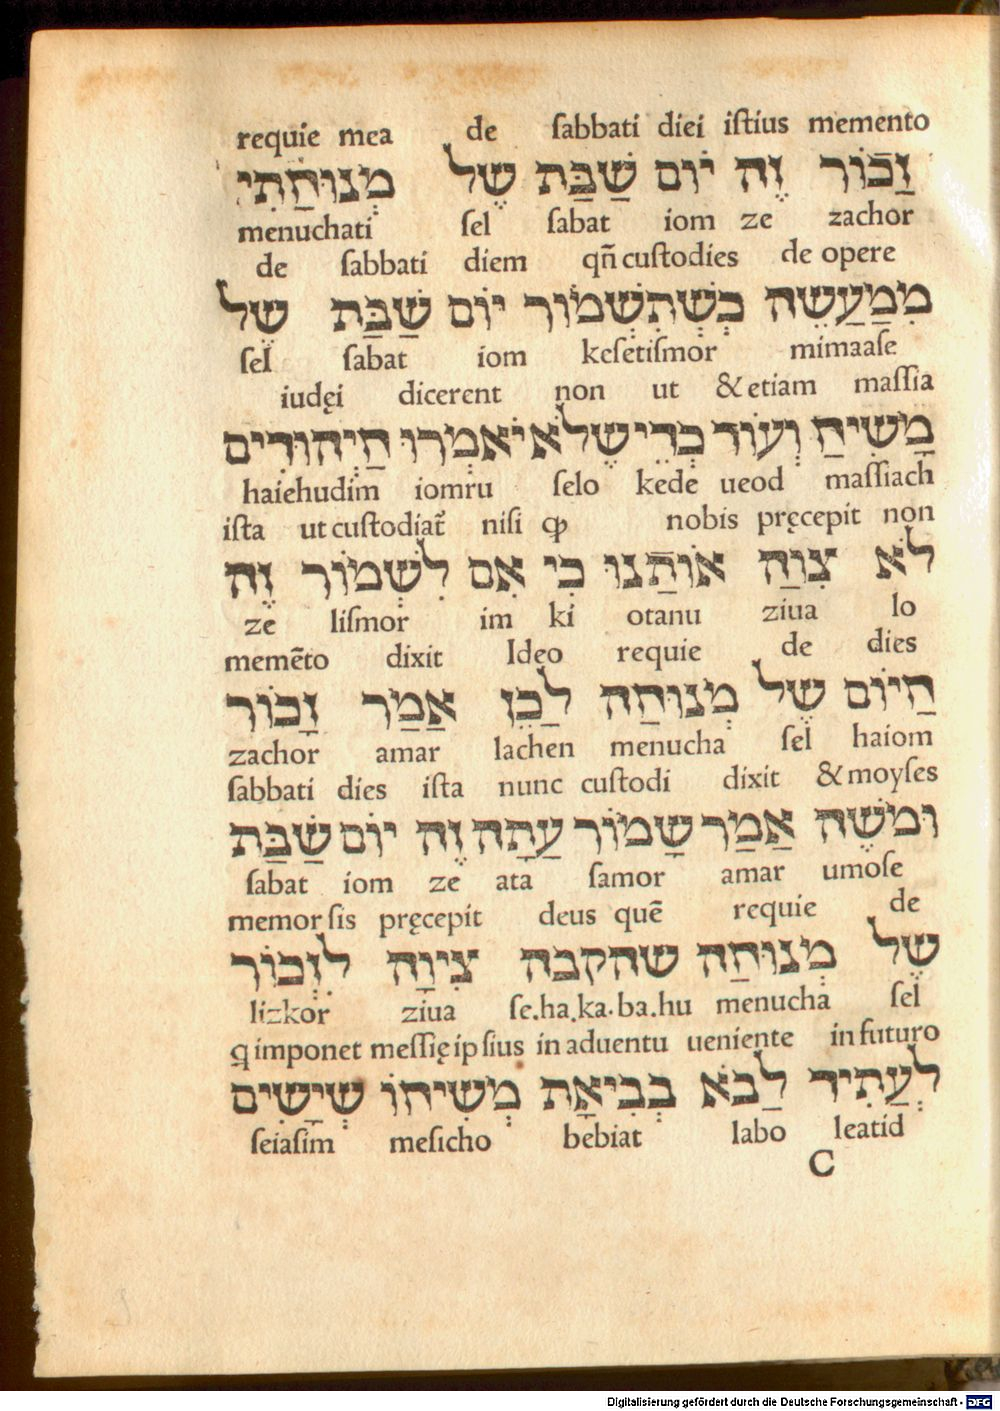 requie mea de ſabbati diei iſtius memento
זַכוֹר זֶה יוֹם שַׁבַּת שֶׁל מְנוּחַתִי
menuchati ſel ſabat iom ze zachor
de ſabbati diem qñ cuſtodies de opere
מִמַעֲשֶׂה כְּשֶׁתִשְׁמוֹר יוֹם שַׁבַּת שֶׁל
ſel ſabat iom keſetiſmor mimaaſe
iudęi dicerent non ut & etiam maſſia
מָשִׁיחַ וְעוֹד כְּדֵי שֶׁלֹא יֹאמְרוּ הַיְהוּדִים
haiehudim iomru ſelo kede ueod maſſiach
iſta ut cuſtodiat̃ niſi ꝙ nobis pręcepit non
לֹא צִוַּה אוֹתַנוּ כִי אִם לִשְׁמוֹר זֶה
ze liſmor im ki otanu ziua lo
memẽto dixit Ideo requie de dies
הַיוֹם שֶׁל מְנוּחַה לַכֵן אַמַר זָכוֹר
zachor amar lachen menucha ſel haiom
ſabbati dies iſta nunc cuſtodi dixit & moyſes
וּמֹשֶׁה אַמַר שָׁמוֹר עַתָה זֶה יוֹם שַׁבַּת
ſabat iom ze ata ſamor amar umoſe
memor ſis pręcepit deus quẽ requie de
שֶׁל מְנוּחַה שהקבה צִיוָה לִזְכוֹר
lizkor ziua ſe.ha.ka.ba.hu menucha ſel
q imponet meſſię ipſius in aduentu ueniente in futuro
לְעַתִיד לַבֹא בְּבִיאָת מְשִׁיחוֹ שֶׁיָשִׂים
ſeiaſim meſicho bebiat labo leatid
C
Digitalisierung gefördert durch die Deutsche Forschungsgemeinschaft - DFG